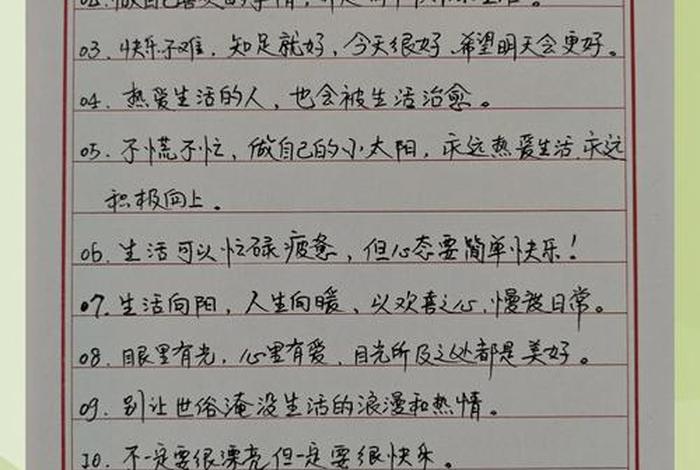 03. 快乐不难,知足就好,今天很好,希望明天会更好。
04. 热爱生活的人,也会被生活治愈。
05. 不慌不忙,做自己的小太阳,永远热爱生活,永远
积极向上。
06. 生活可以忙碌疲惫,但心态要简单快乐!
07. 生活向阳,人生向暖,以欢喜之心,慢度日常。
08. 眼里有光,心里有爱,目光所及之处都是美好。
09. 别让世俗淹没生活的浪漫和热情。
10. 不一定要很漂亮但一定要很快乐。